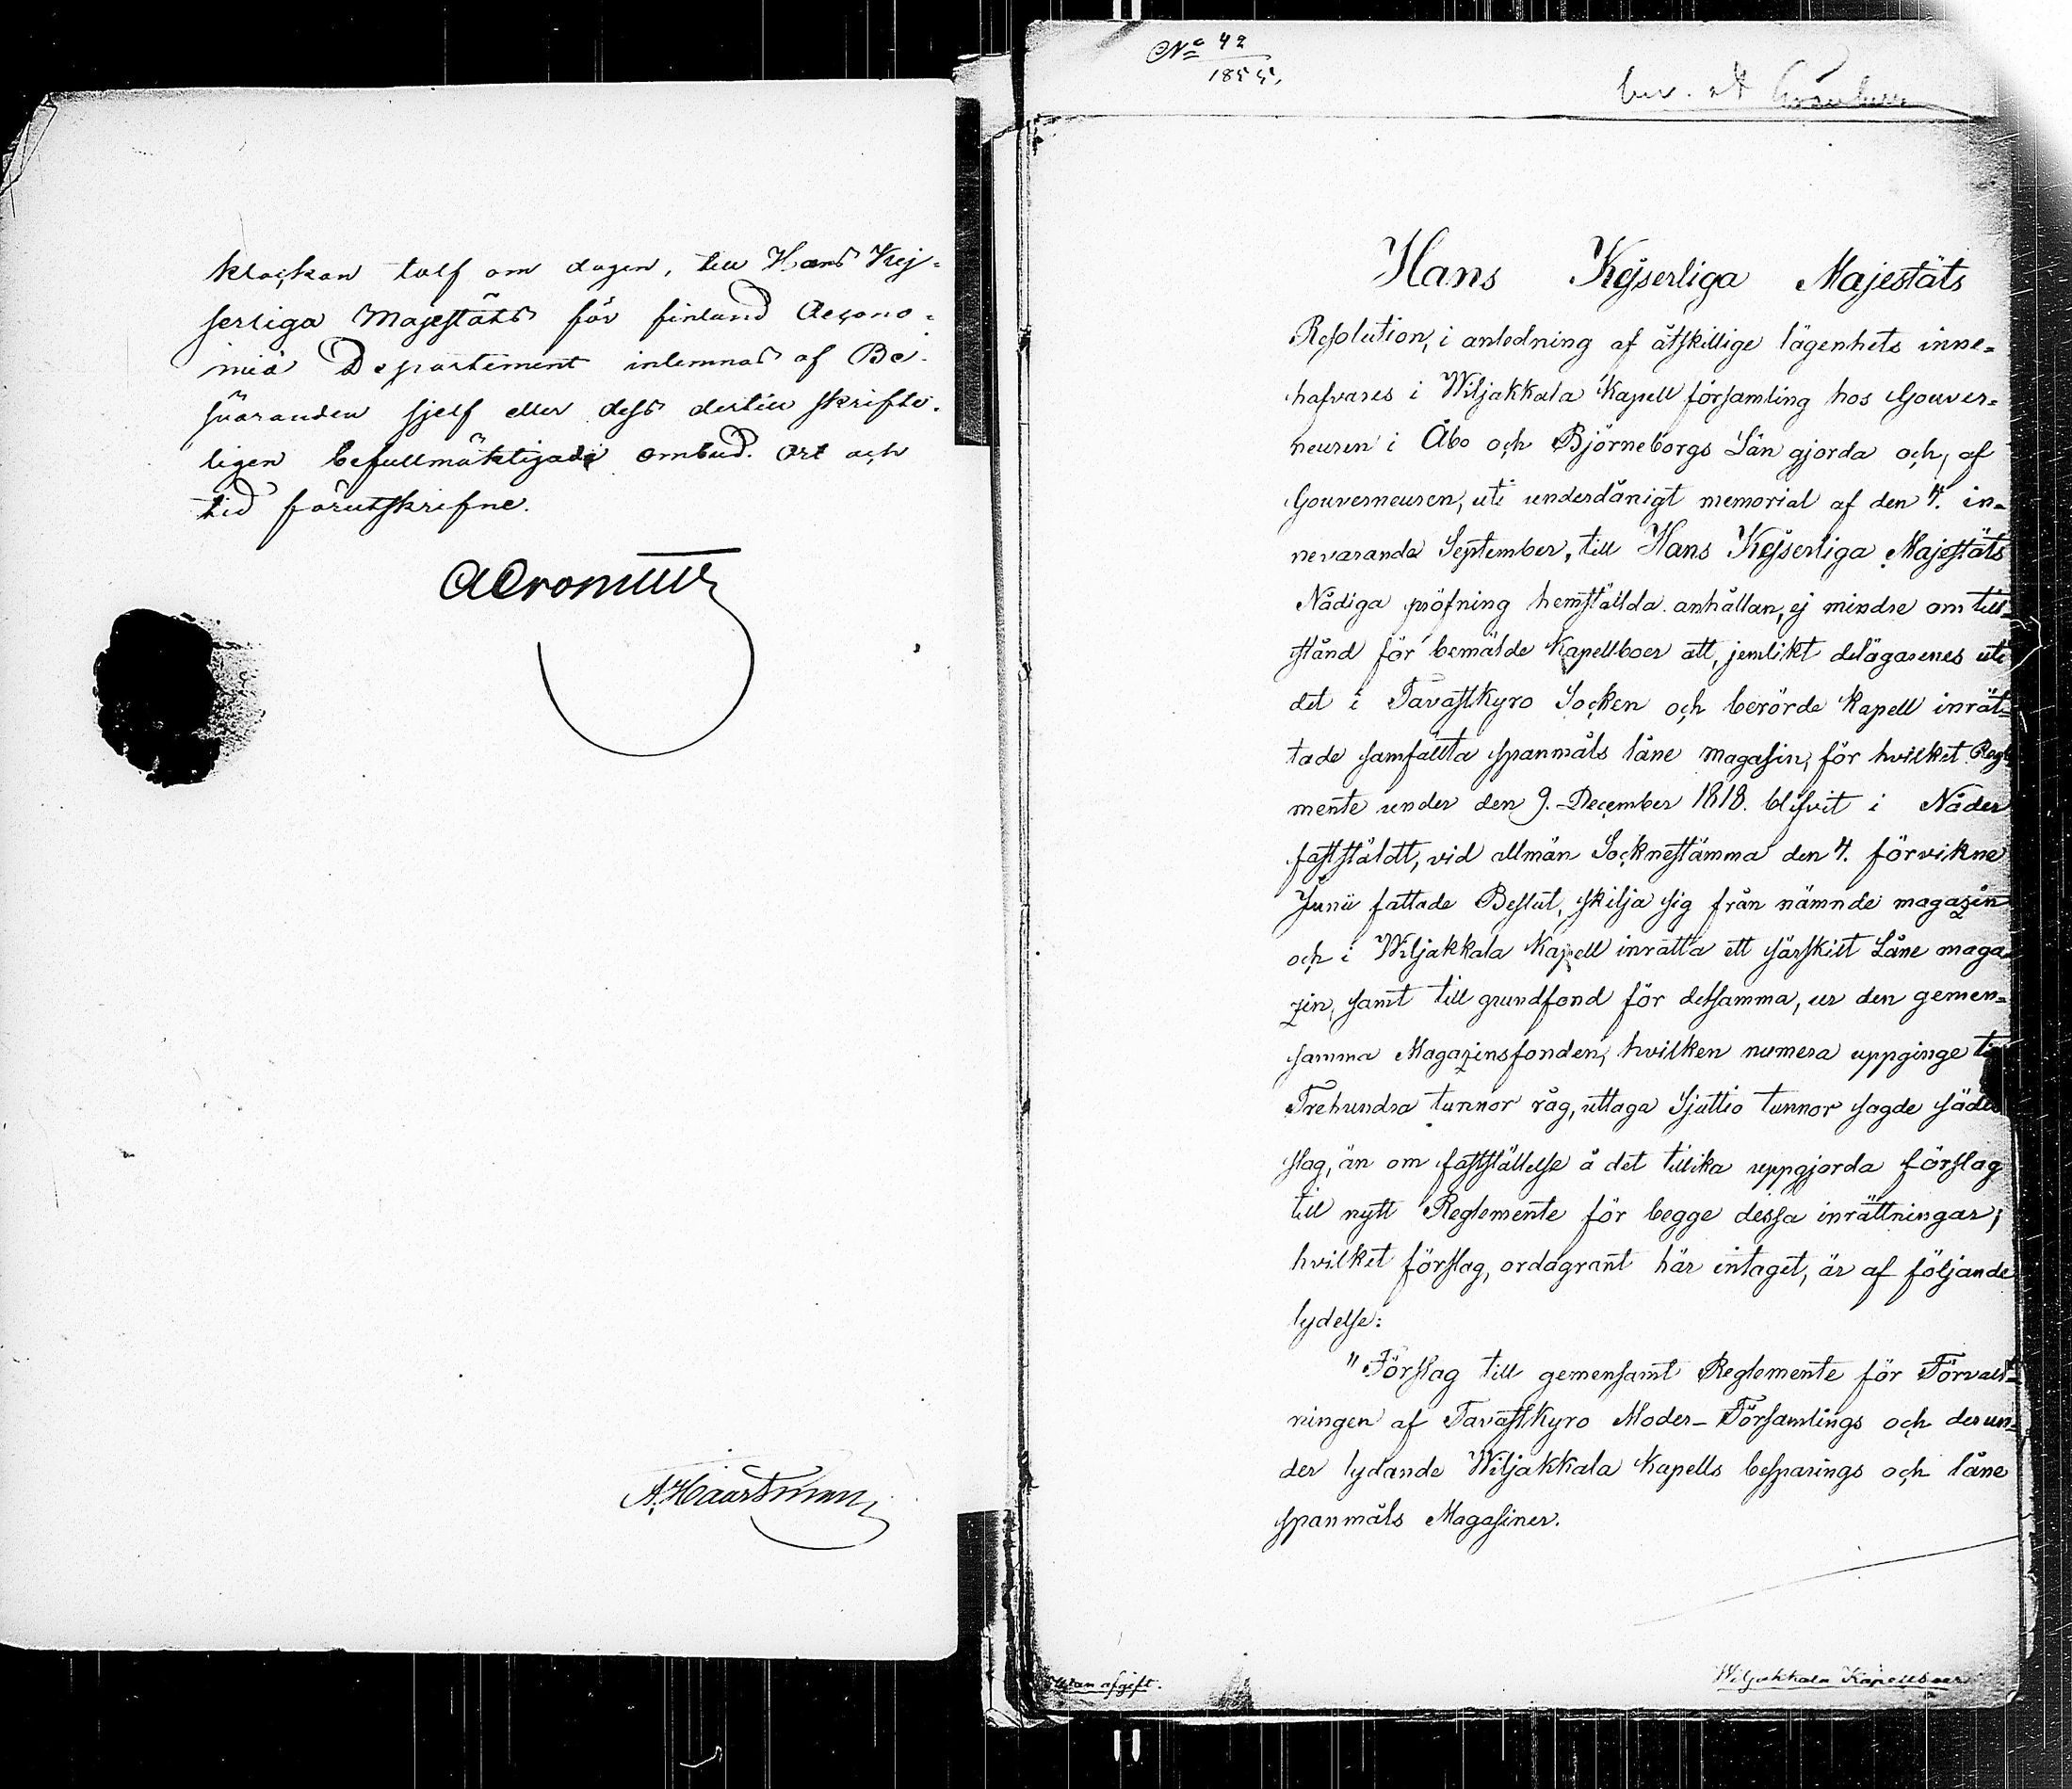 klockan tolf om dagen, till Hans Kej-
serliga Majestäts för finland Oecono-
mie Departement inlemnas af Be-
svaranden sjelf eller dess dertill skrifte-
ligen befullmäktigade ombud. Ort och
tid förutskrifne.
A Haartman
No 42
1855.
Hans Kejserliga Majestäts
Resolution, i anledning af åtskillige lägenhets inne-
hafvares i Wiljakkala Kapell församling hos Gouver-
neuren i Åbo och Björneborgs Län gjorda och, af
Gouverneuren, uti underdånigt memorial af den 4. in-
nevarande September, till Hans Kejserliga Majestäts
Nådiga pröfning hemställda anhållan, ej mindre om till-
stånd för bemälde Kapellboer att, jemlikt delägarenes uti
det i Tavastkyro Socken och berörde Kapell inrät-
tade samfällta spanmåls låne magasin, för hvilket Regle
mente under den 9. December 1818. blifvit i Nåder
fastställdt, vid allmän Socknestämma den 4. förvikne
Junii fattade Beslut, skilja sig från nämnde magazin
och i Wiljakkala Kapell inrätta ett särskilt Låne maga-
zin, samt till grundfond för detsamma, ur den gemen-
samma Magazinsfonden, hvilken numera uppginge till
Trehundra tunnor råg, uttaga Sjuttio tunnor sagde sädes
slag, än om fastställelse å det tillika uppgjorda förslag
till nytt Reglemente för begge dessa inrättningar;
hvilket förslag, ordagrant här intaget, är af följande
lydelse:
"Förslag till gemensamt Reglemente för Förvalt-
ningen af Tavastkyro Moder-Församlings och derun-
der lydande Wiljakkala Kapells besparings och låne
spanmåls Magasiner.
Utan afgift.
Wiljakkala Kapellboer